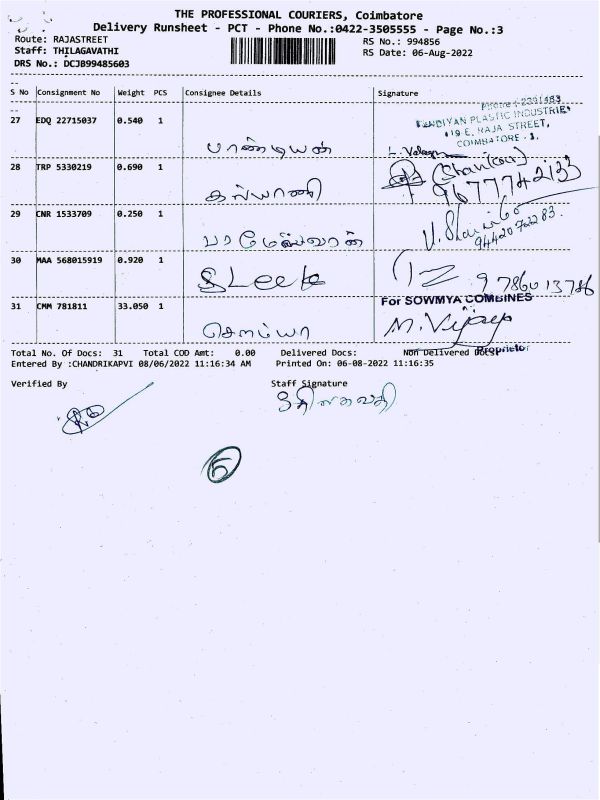 THE PROFESSIONAL COURIERS, Coimbatore
Delivery Runsheet - PCT - Phone No.:0422-3505555 - Page No.:3
Route: RAJASTREET
RS No.: 994856
Staff: THILAGAVATHI
RS Date: 06-Aug-2022
DRS No.: DCJB99485603
S No Consignment No Weight PCS Consignee Details Signature
Phone : 2391483
PANDIYAN PLASTIC INDUSTRIES
119-E, RAJA STREET,
COIMBATORE - 1.
27 EDQ 22715037 0.540 1 பாண்டியன்
28 TRP 5330219 0.690 1 கல்யாணி (Shankar)
9677742133
29 CNR 1533709 0.250 1 பரமேஸ்வரன்
9442072283.
30 MAA 568015919 0.920 1 SLeek 9786013786
For SOWMYA COMBINES
31 CMM 781811 33.050 1 சௌம்யா M. Vijaya
Proprietor
Total No. Of Docs: 31 Total COD Amt: 0.00 Delivered Docs: Non Delivered Docs:
Entered By :CHANDRIKAPVI 08/06/2022 11:16:34 AM Printed On: 06-08-2022 11:16:35
Verified By Staff Signature
திலகவதி
5